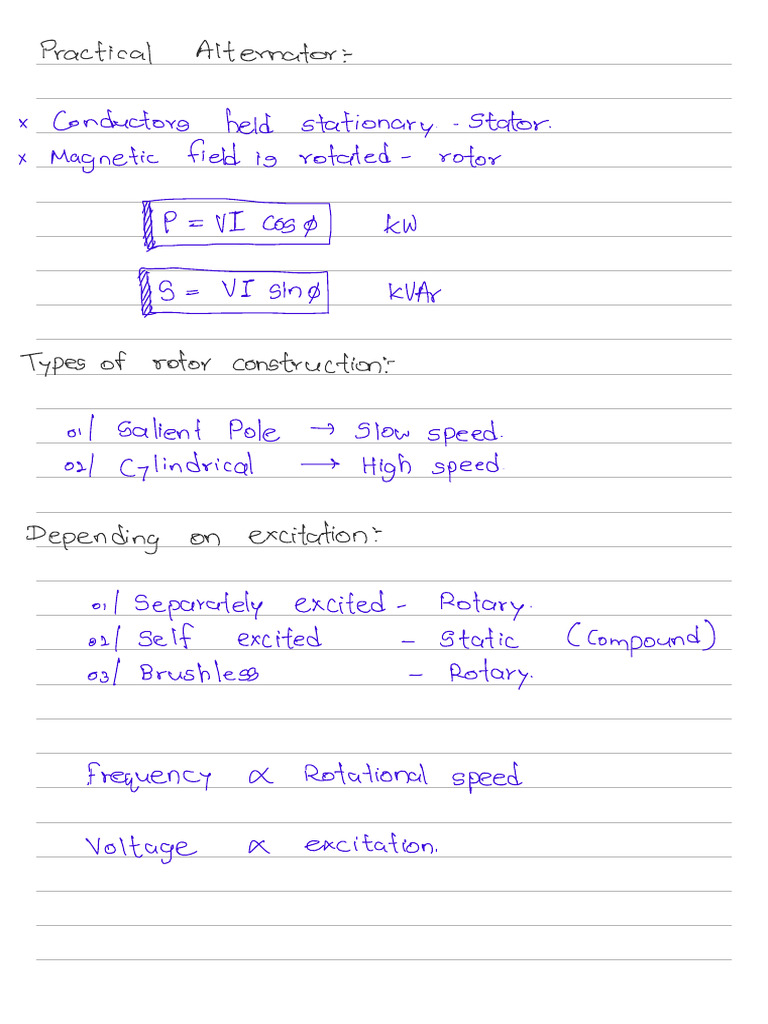 Practical Alternator:-
x Conductors held stationary - Stator.
x Magnetic field is rotated - rotor
P = VI cos φ kW
S = VI sin φ kVAr
Types of rotor construction:-
01/ Salient Pole → Slow speed.
02/ Cylindrical → High speed.
Depending on excitation:-
01/ Separately excited - Rotary.
02/ Self excited - Static (Compound)
03/ Brushless - Rotary.
Frequency ∝ Rotational speed
Voltage ∝ excitation.